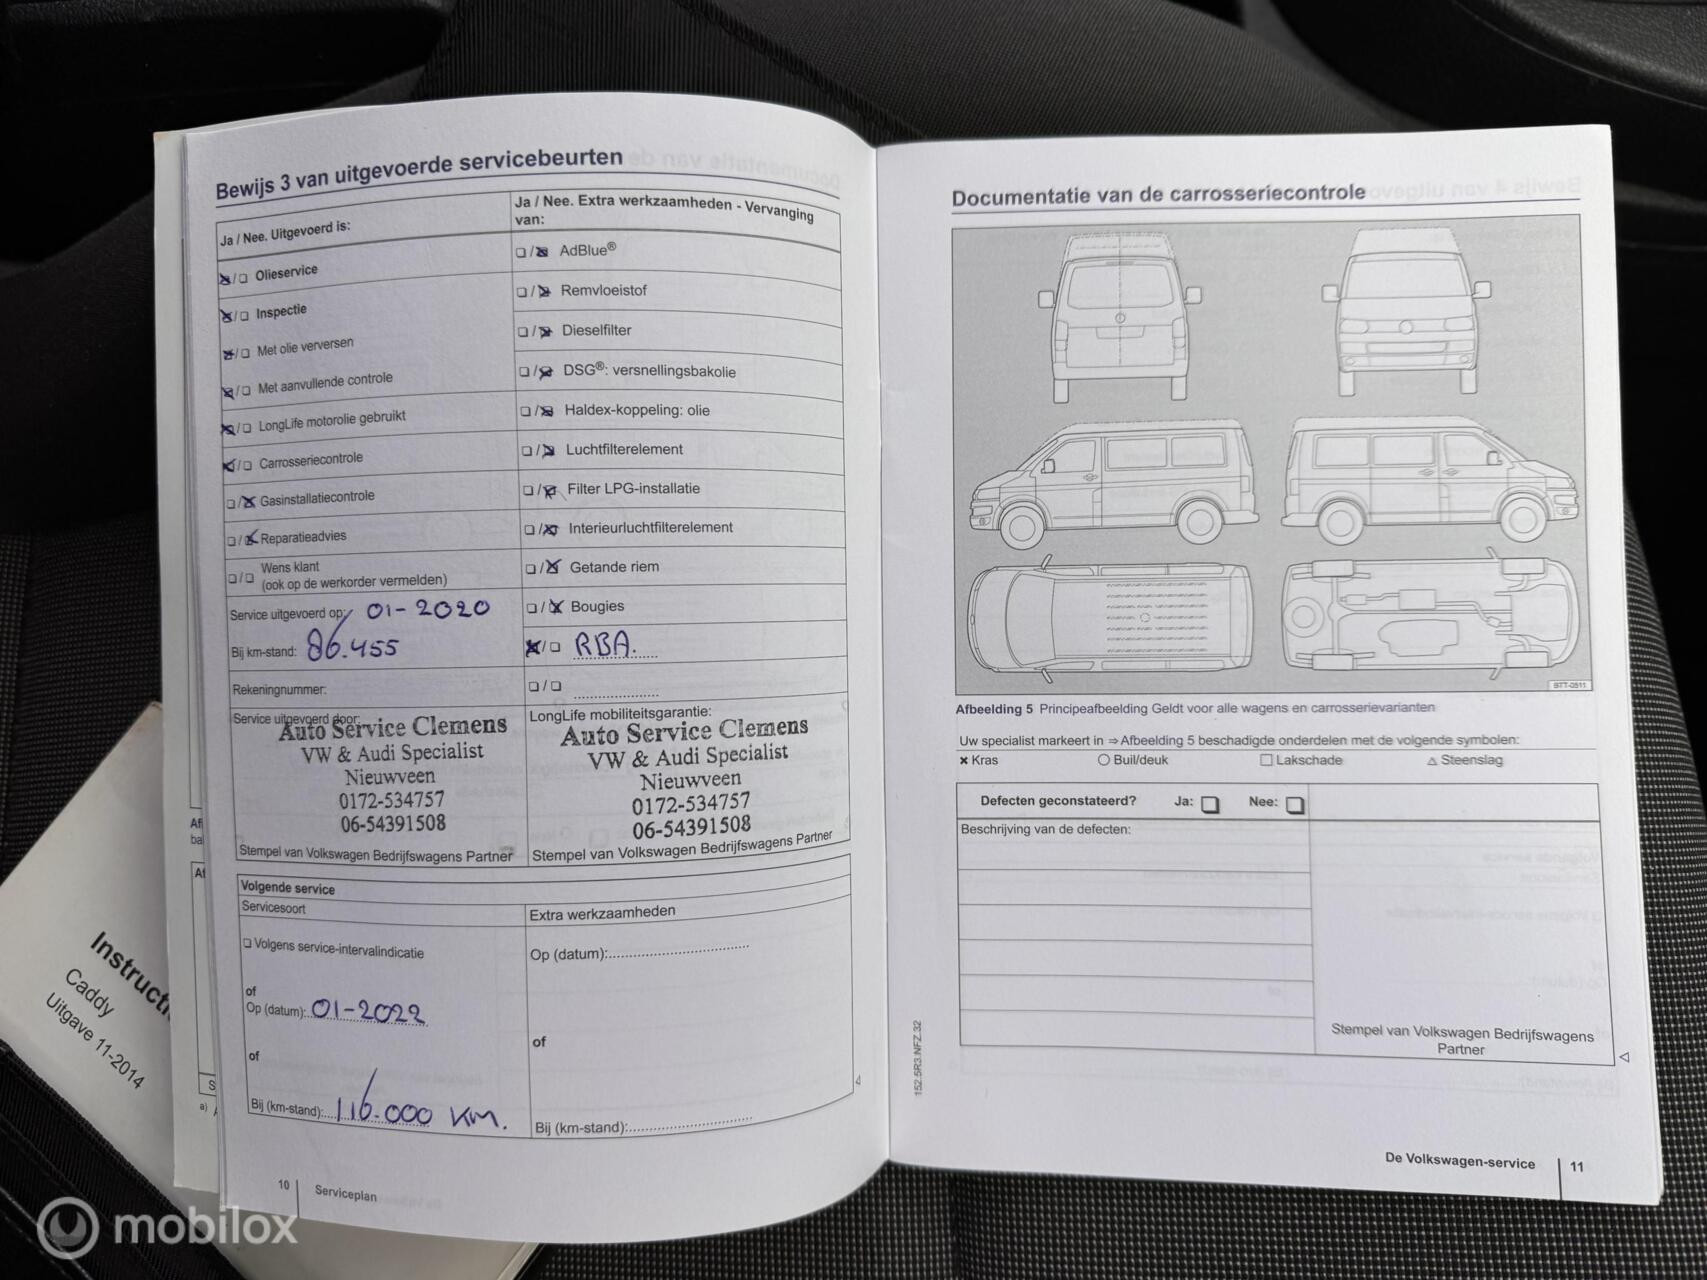 Bewijs 3 van uitgevoerde servicebeurten
Ja / Nee. Uitgevoerd is:
Ja / Nee. Extra werkzaamheden - Vervanging
van:
Olieservice
Inspectie
Met olie verversen
Met aanvullende controle
LongLife motorolie gebruikt
Carrosseriecontrole
Gasinstallatiecontrole
Reparatieadvies
Wens klant
(ook op de werkorder vermelden)
AdBlue®
Remvloeistof
Dieselfilter
DSG®: versnellingsbakolie
Haldex-koppeling: olie
Luchtfilterelement
Filter LPG-installatie
Interieurluchtfilterelement
Getande riem
Bougies
RBA.
Service uitgevoerd op: 01-2020
Bij km-stand: 86.455
Rekeningnummer:
Service uitgevoerd door:
Auto Service Clemens
VW & Audi Specialist
Nieuwveen
0172-534757
06-54391508
Stempel van Volkswagen Bedrijfswagens Partner
LongLife mobiliteitsgarantie:
Auto Service Clemens
VW & Audi Specialist
Nieuwveen
0172-534757
06-54391508
Stempel van Volkswagen Bedrijfswagens Partner
Volgende service
Servicesoort
Volgens service-intervalindicatie
of
Op (datum): 01-2022
of
Bij (km-stand): 116.000 KM.
Extra werkzaamheden
Op (datum):
of
Bij (km-stand):
10 Serviceplan
Documentatie van de carrosseriecontrole
BTT-0511
Afbeelding 5 Principeafbeelding Geldt voor alle wagens en carrosserievarianten
Uw specialist markeert in ⇒ Afbeelding 5 beschadigde onderdelen met de volgende symbolen:
× Kras ○ Buil/deuk □ Lakschade △ Steenslag
Defecten geconstateerd? Ja: □ Nee: □
Beschrijving van de defecten:
Stempel van Volkswagen Bedrijfswagens
Partner
152.5R3.NFZ.32
De Volkswagen-service 11
Caddy
Uitgave 11-2014
mobilox